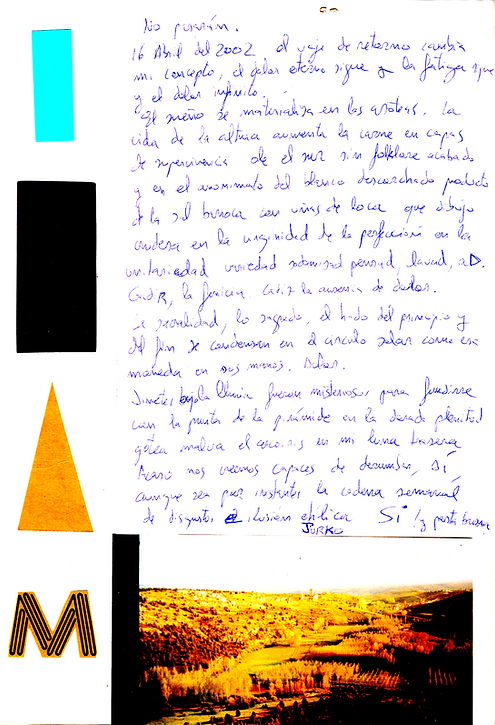 No pasarán.
16 Abril del 2002 el viaje de retorno cambia
mi concepto, el dolor eterno sigue y la fatiga sigue
y el dolor infinito.
El sueño se materializa en las azoteas. La
vida de la altura aumenta la carne en capas
de supervivencia de el sur sin folklore acabado
y en el anonimato del blanco descorchado producto
de la sal bunca con uñas de loca que dibujo
en la virginidad de la perfección en la
variedad
Gadir, la fenicia. Cadiz la ausencia de dudas.
La sexualidad, lo sagrado, el hado del principio y
del fin se condensan en el círculo solar como esa
moneda en sus manos. Dolar.
bajo la lluvia fueron misteriosos para fundirse
con la punta de la pirámide en la dorada plenitud
gotea malva el arcoiris en mi luna trasera
Acaso nos creemos capaces de derrumbar, Sí,
aunque sea por instantes la cadena semanal
de disgustos e ilusión etílica Sí
JURKO
M